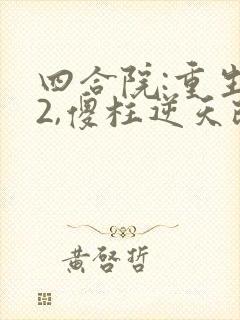 四合院:重生
2,傻柱逆天改
黄啓哲